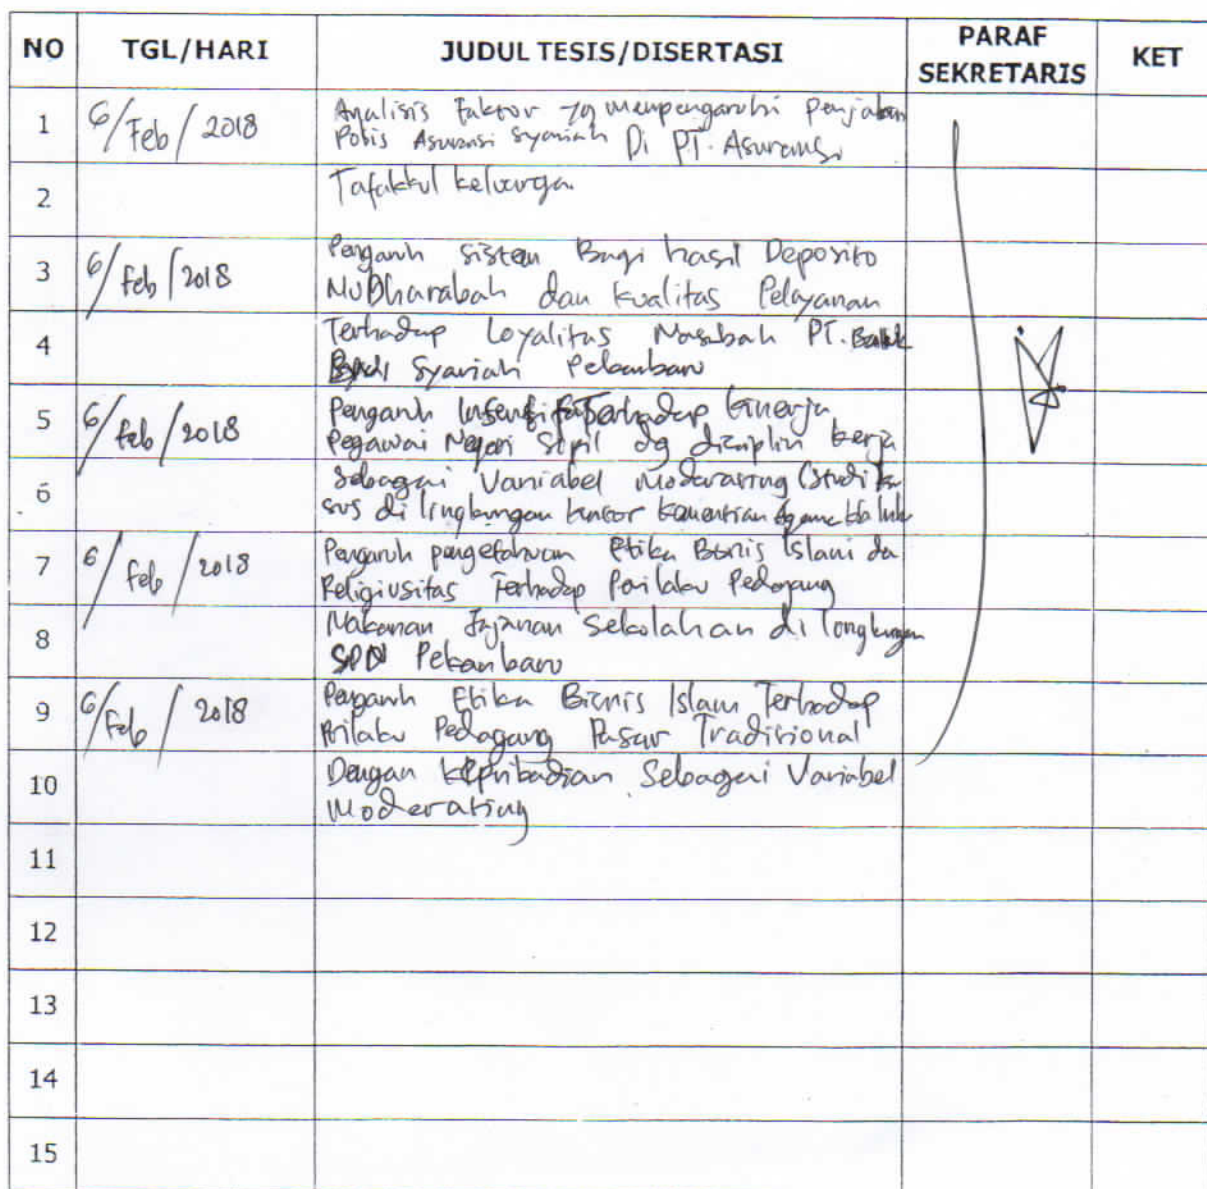 NO TGL/HARI JUDUL TESIS/DISERTASI PARAF SEKRETARIS KET
1 6/Feb/2018 Analisis Faktor yg mempengaruhi penjualan
Polis Asuransi Syariah Di PT. Asuransi
2 Tafakkul keluarga.
3 6/Feb/2018 Pengaruh sistem Bagi hasil Deposito
MuDharabah dan kualitas Pelayanan
4 Terhadap Loyalitas Nasabah PT. Bank
Syariah Pekanbaru
5 6/Feb/2018 Pengaruh Insentif Terhadap kinerja
Pegawai Negeri Sipil dg disiplin kerja
6 Sebagai Variabel Moderating (Studi ka
sus di lingkungan kantor kementrian Agama
7 6/Feb/2018 Pengaruh pengetahuan Etika Bisnis Islami da
Religiusitas Terhadap Perilaku Pedagang
8 Makanan Jajanan Sekolahan di lingkungan
SDN Pekanbaru
9 6/Feb/2018 Pengaruh Etika Bisnis Islam Terhadap
Prilaku Pedagang Pasar Tradisional
10 Dengan kepribadian Sebagai Variabel
Moderating
11
12
13
14
15